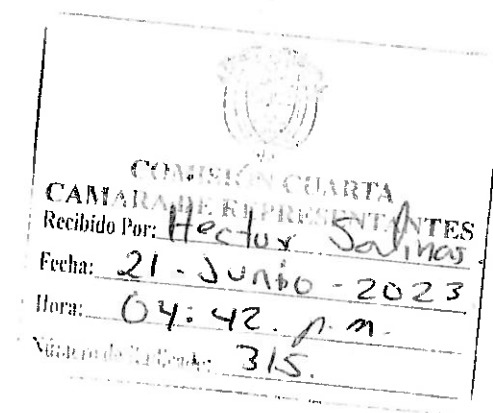 COMISIÓN CUARTA
CAMARA DE REPRESENTANTES
Recibido Por: Hector Salinas
Fecha: 21 - Junio - 2023
Hora: 04:42. p.m.
Número de Radicado: 315.